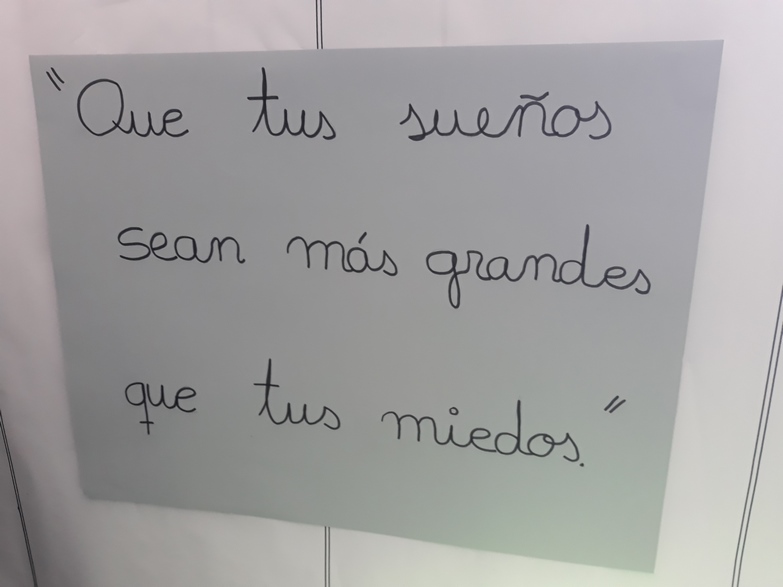 "Que tus sueños
sean más grandes
que tus miedos."